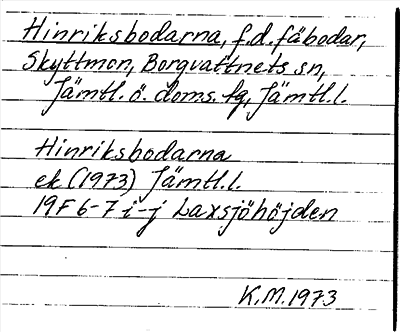 Hinriksbodarna, f.d. fäbodar,
Skyttmon, Borgvattnets sn,
Jämtl. ö. doms. tg, Jämtl.l.
Hinriksbodarna
ek (1973) Jämtl.l.
19F 6-7 i-j Laxsjöhöjden
K.M. 1973